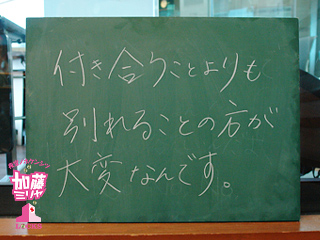 付き合うことよりも
別れることの方が
大変なんです。
加藤
ミリヤ